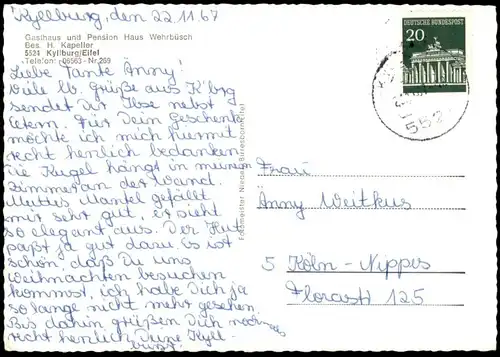 Kyllburg, den 22.11.67
Gasthaus und Pension Haus Wehrbüsch
Bes. H. Kapeller
5524 Kyllburg/Eifel
Telefon: 06563 - Nr. 269
Liebe Tante Änny!
Viele lb. Grüße aus K'brg
sendet Dir Ilse nebst
Eltern. Für Dein Geschenk
möchte ich mich hiermit
recht herzlich bedanken.
Die Kugel hängt in meinem
Zimmer an der Wand.
Muttis Mantel gefällt
mir sehr gut, er sieht
so elegant aus. Der Hut
paßt ja gut dazu. Es ist
schön, daß Du uns
Weihnachten besuchen
kommst, ich habe Dich ja
so lange nicht mehr gesehen.
Bis dahin grüßen Dich nochmals
recht herzlich Deine Kyll-
DEUTSCHE BUNDESPOST
20
552
Frau
Änny Weitkus
5 Köln-Nippes
Florastr 125